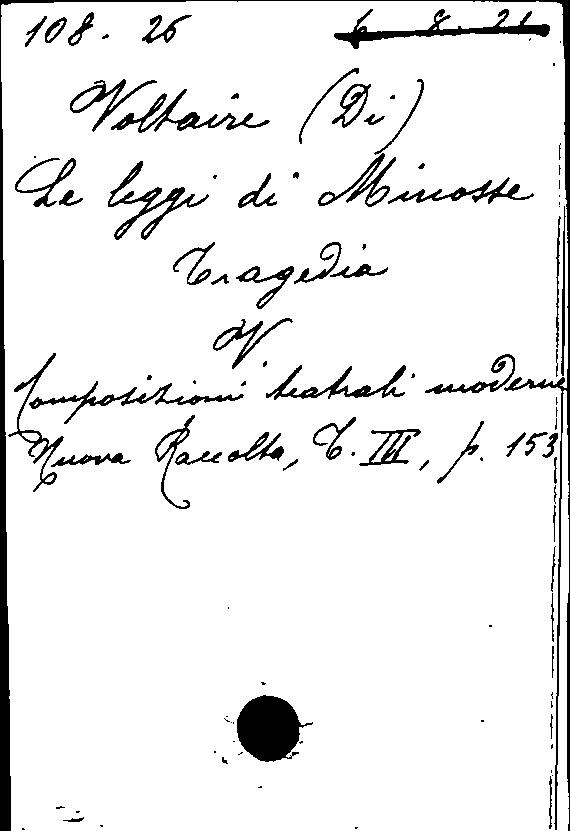 108. 26 6 8. 21
Voltaire (Di)
Le leggi di Minosse
Tragedia
V.
Composizioni teatrali moderne
Nuova Raccolta, T. III, p. 153